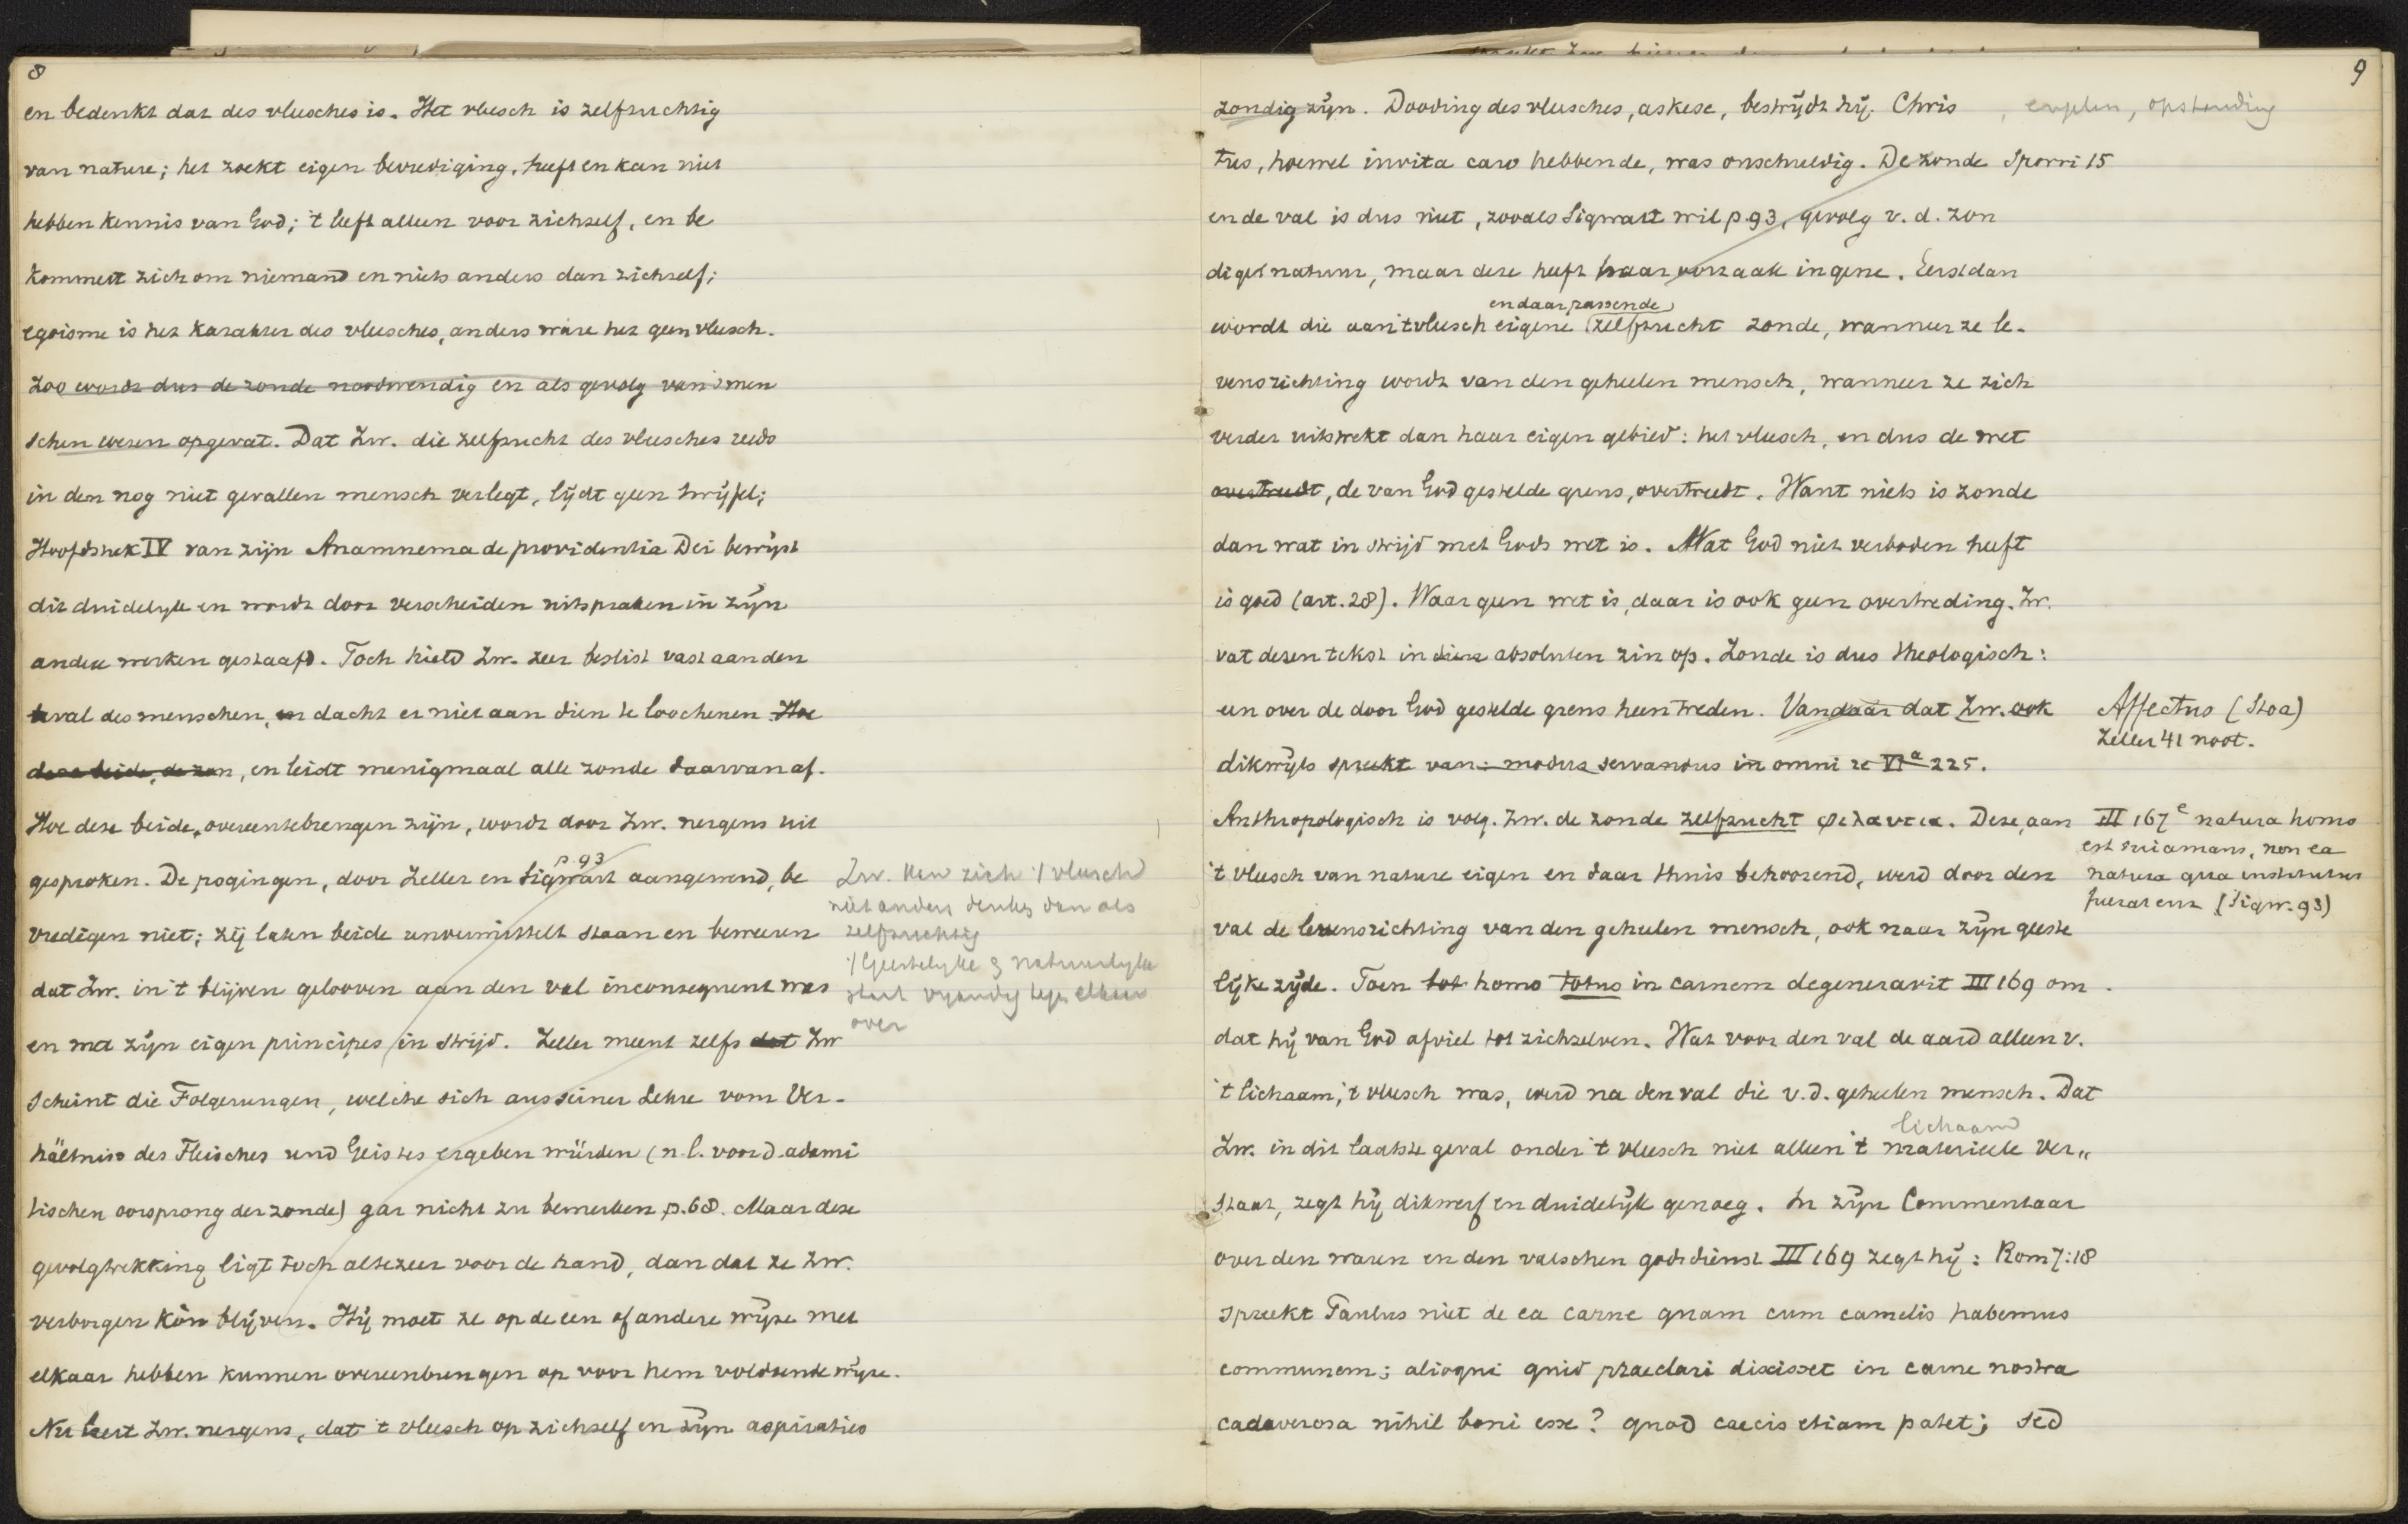 8
en bedenkt dat des vleesches is. Het vleesch is zelfzuchtig
van nature; het zoekt eigen bevrediging, heeft en kan niet
hebben kennis van God; 't leeft alleen voor zichzelf, en be
kommert zich om niemand en niets anders dan zichzelf;
egoisme is het karakter des vleesches, anders ware het geen vleesch.
Zoo wordt dus de zonde noodwendig en als gevolg van 's men
schen wezen opgevat. Dat Zw. die zelfzucht des vleesches reeds
in den nog niet gevallen mensch verlegt, lijdt geen twijfel;
Hoofdstuk IV van zijn Anamnema de providentia Dei bewijst
dit duidelijk en wordt door verscheiden uitspraken in zijn
andere werken gestaafd. Toch hield Zw. zeer beslist vast aan den
val des menschen, en dacht er niet aan dien te loochenen Hoe
deze beide, de zon, en leidt menigmaal alle zonde daarvan af.
Hoe deze beide, overeentebrengen zijn, wordt door Zw. nergens uit
p. 93
gesproken. De pogingen, door Zeller en Sigwart aangewend, be
vredigen niet; zij laten beide unvermittelt staan en beweren
dat Zw. in 't blijven gelooven aan den val inconsequent was
en met zijn eigen principes in strijd. Zeller meent zelfs dat Zw
scheint die Folgerungen, welche sich aus seiner Lehre vom Ver-
hältniss des Fleisches und Geistes ergeben würden (n.l. voor d. adami
tischen oorsprong der zonde) gar nicht zu bemerken p. 68. Maar deze
gevolgtrekking ligt toch altezeer voor de hand, dan dat ze Zw.
verborgen kòn blijven. Hij moet ze op de een of andere wijze met
elkaar hebben kunnen overeenbrengen op voor hem voldoende wijze.
Nu leert Zw. nergens, dat 't vleesch op zichzelf en zijn aspiraties
Zw. kan zich 't vleesch
niet anders denken dan als
zelfzuchtig
't Geestelijke & natuurlijke
staat vijandig tegen elkaar
over
9
zondig zijn. Dooding des vleesches, askese, bestrijdt hij. Chris
, engelen, opstanding
tus, hoewel invita caro hebbende, was onschuldig. De zonde
Sporri 15
en de val is dus niet, zooals Sigwart wil p. 93, gevolg v. d. zon
dige natuur, maar deze heeft haar oorzaak in gene. Eerst dan
en daar passende
wordt die aan 't vleesch eigene zelfzucht zonde, wanneer ze le-
vensrichting wordt van den geheelen mensch, wanneer ze zich
verder uitstrekt dan haar eigen gebied: het vleesch, en dus de wet
overtreedt, de van God gestelde grens, overtreedt. Want niets is zonde
dan wat in strijd met Gods wet is. Wat God niet verboden heeft
is goed (art. 28). Waar geen wet is, daar is ook geen overtreding. Zw.
vat dezen tekst in absoluten zin op. Zonde is dus theologisch:
een over de door God gestelde grens heen treden. Vandaar dat Zw. ook
dikwijls spreekt van: modus servandus in omni re VIa 225.
Affectus (Stoa)
Zeller 41 noot.
Anthropologisch is volg. Zw. de zonde zelfzucht φιλαυτια. Deze, aan
't vleesch van nature eigen en daar thuis behoorend, werd door den
val de levensrichting van den geheelen mensch, ook naar zijn geeste
lijke zijde. Toen homo totus in carnem degeneravit III 169 om
dat hij van God afviel tot zichzelven. Wat voor den val de aard alleen v.
't lichaam, 't vleesch was, werd na den val die v.d. geheelen mensch. Dat
lichaam
Zw. in dit laatste geval onder 't vleesch niet alleen 't materieele ver„
staat, zegt hij dikwerf en duidelijk genoeg. In zijn Commentaar
over den waren en den valschen godsdienst III 169 zegt hij: Rom 7:18
spreekt Paulus niet de ea carne quam cum camelis habemus
communem; alioqui quid praeclari dixisset in carne nostra
cadaverosa nihil boni esse? quod caecis etiam patet; sed
III 167e natura homo
est sui amans, non ea
natura qua institutus
fuerat enz (Sigw. 93)